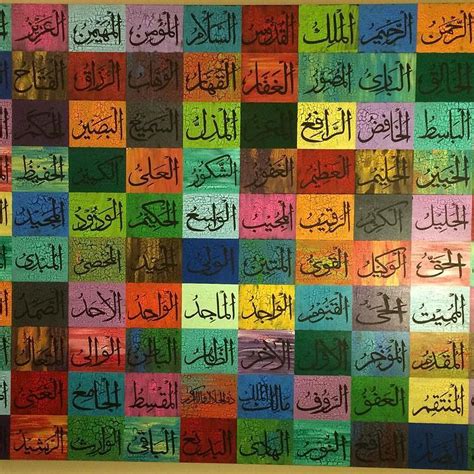 الرحمن الرحيم الملك القدوس السلام المؤمن المهيمن العزيز
الخالق البارئ المصور الغفار القهار الوهاب الرزاق الفتاح
الباسط الخافض الرافع المذل السميع البصير الحكم
الخبير الحليم العظيم الغفور الشكور العلي الكبير الحفيظ
الجليل الكريم الرقيب المجيب الواسع الحكيم الودود المجيد
الحق الوكيل القوي المتين الولي الحميد المحصي المبدئ
المميت الحي القيوم الواجد الماجد الواحد الاحد الصمد
المقدم المؤخر الأول الآخر الظاهر الباطن الوالي المتعال
المنتقم العفو الرؤوف مالك الملك المقسط الجامع الغني
الضار النافع النور الهادي البديع الباقي الوارث الرشيد